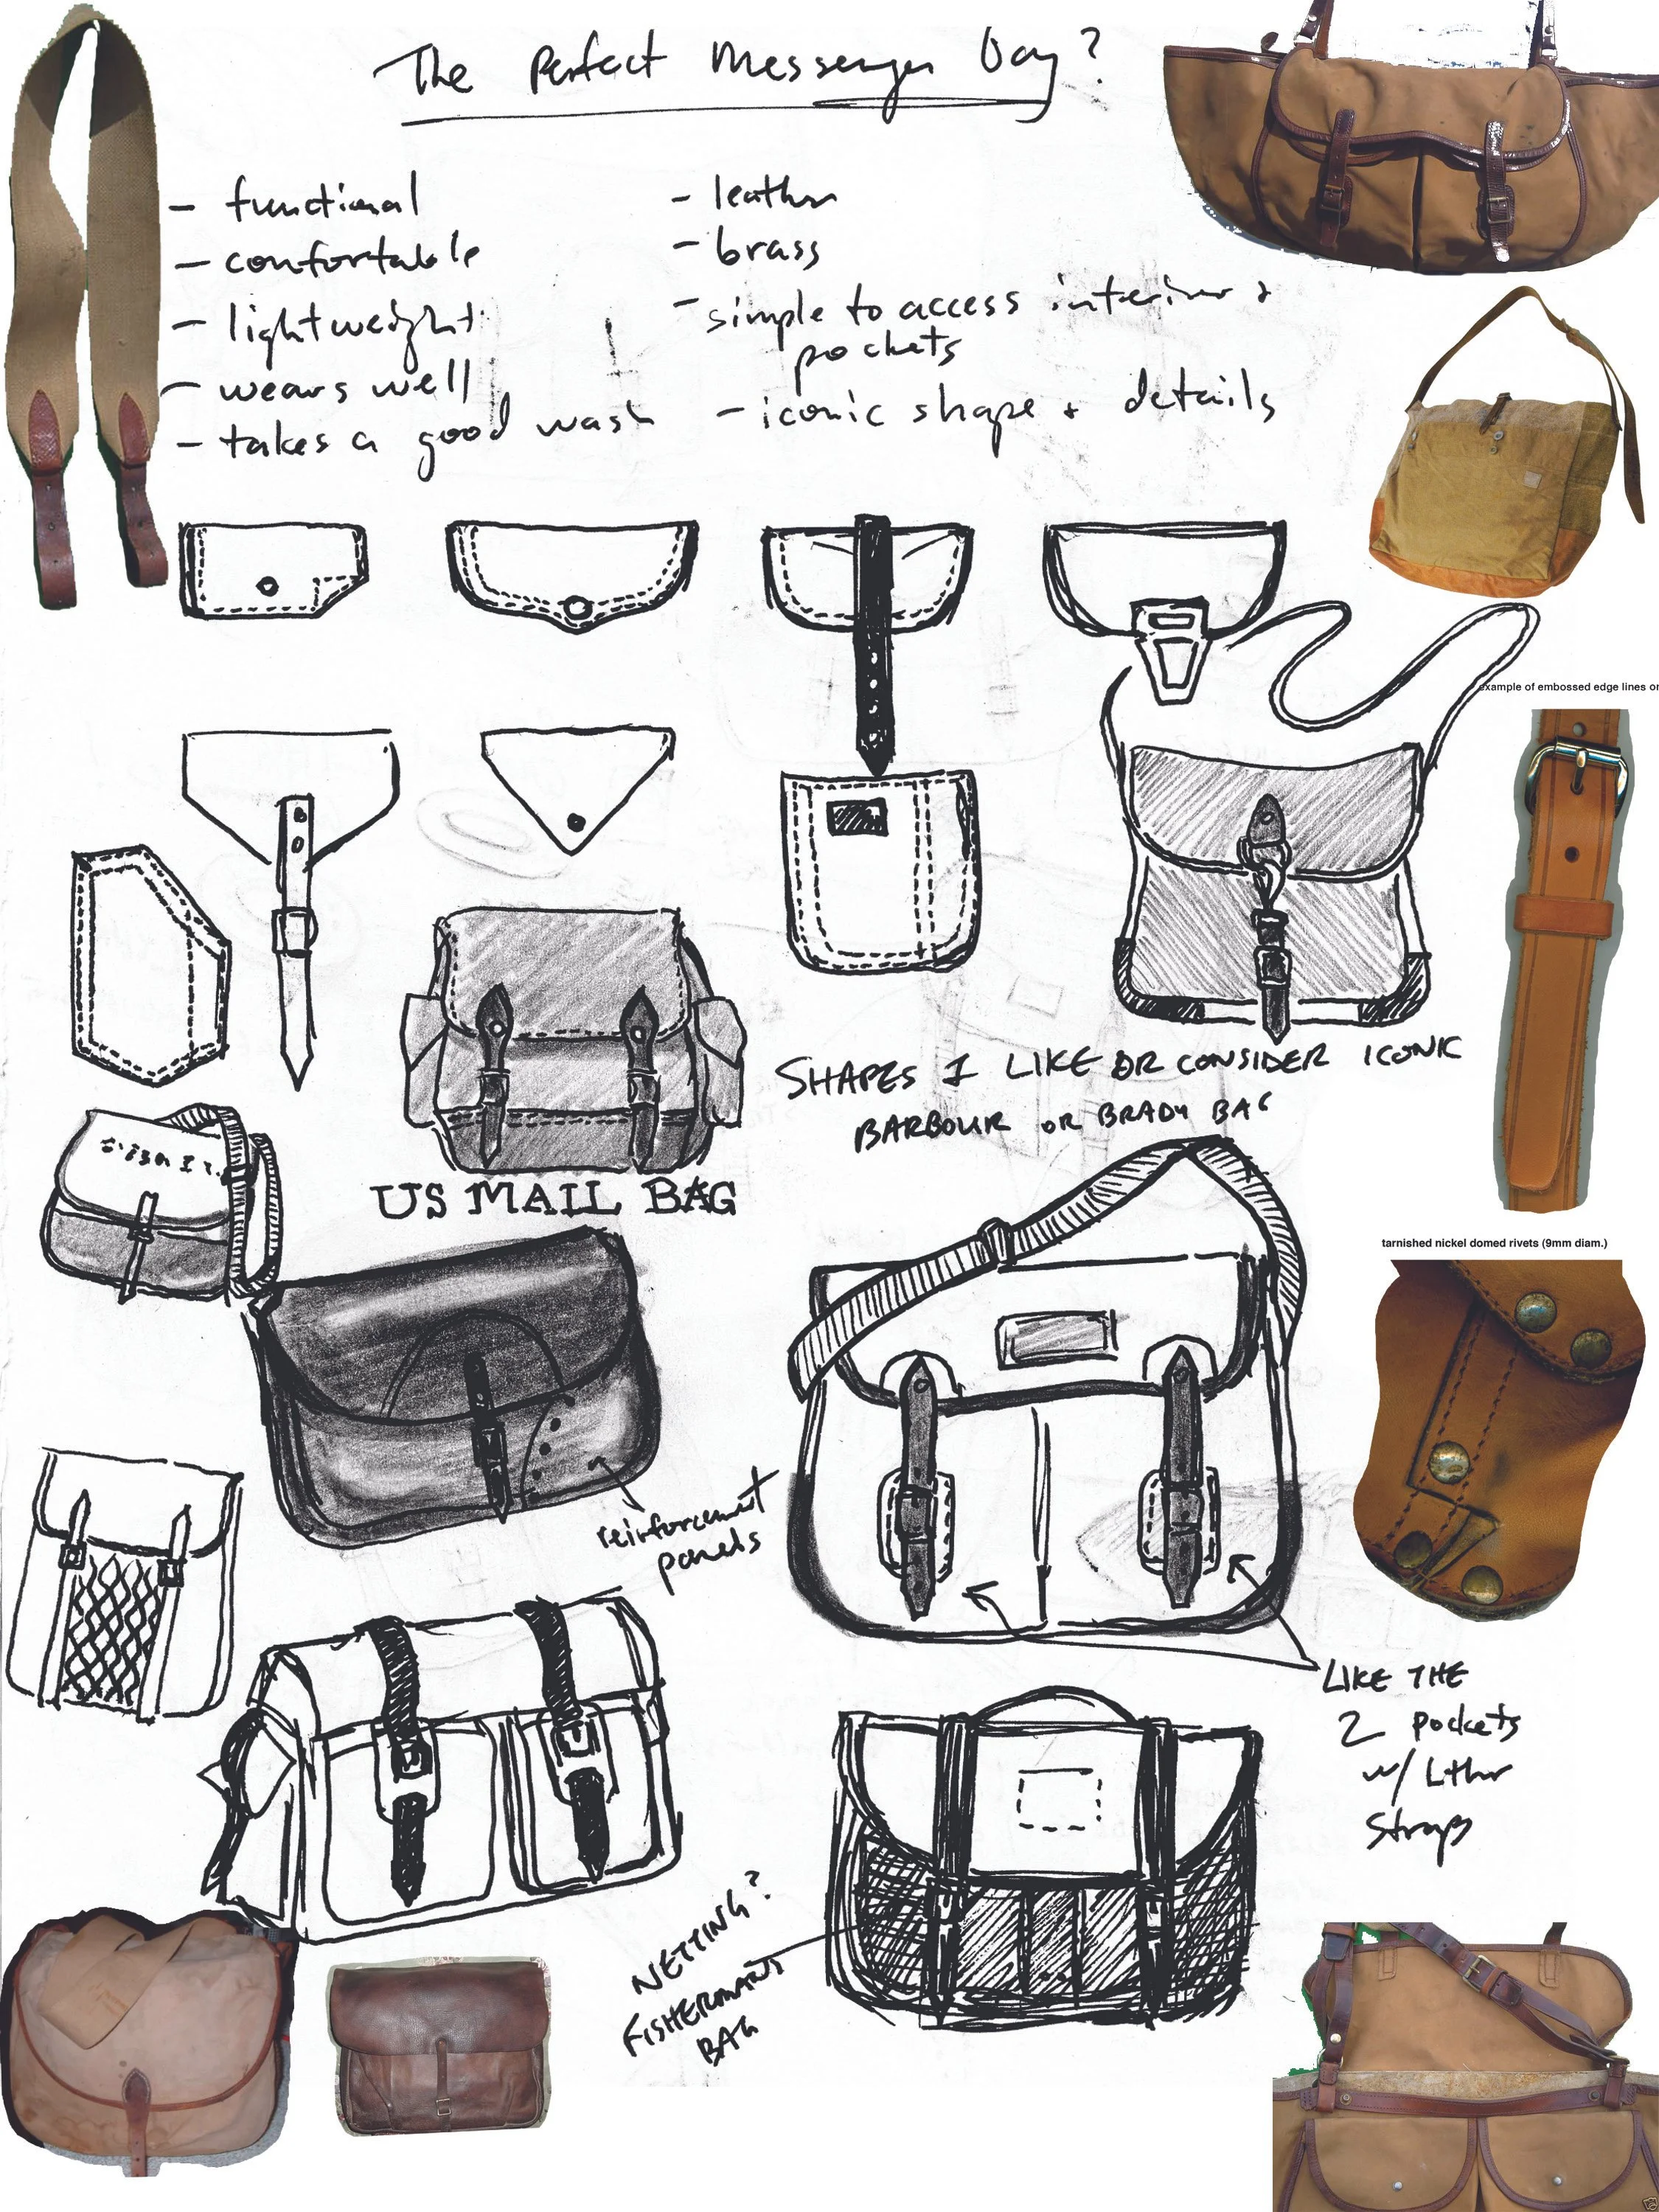 The Perfect Messenger Bag?
- functional
- confortable
- lightweight
- wears well
- takes a good wash
- leather
- brass
- simple to access interior +
pockets
- iconic shape + details
example of embossed edge lines or
SHAPES I LIKE OR CONSIDER ICONIC
BARBOUR OR BRADY BAG
US MAIL BAG
tarnished nickel domed rivets (9mm diam.)
reinforcement
panels
LIKE THE
2 pockets
w/ Lthr
Straps
NETTING?
FISHERMANS
BAG